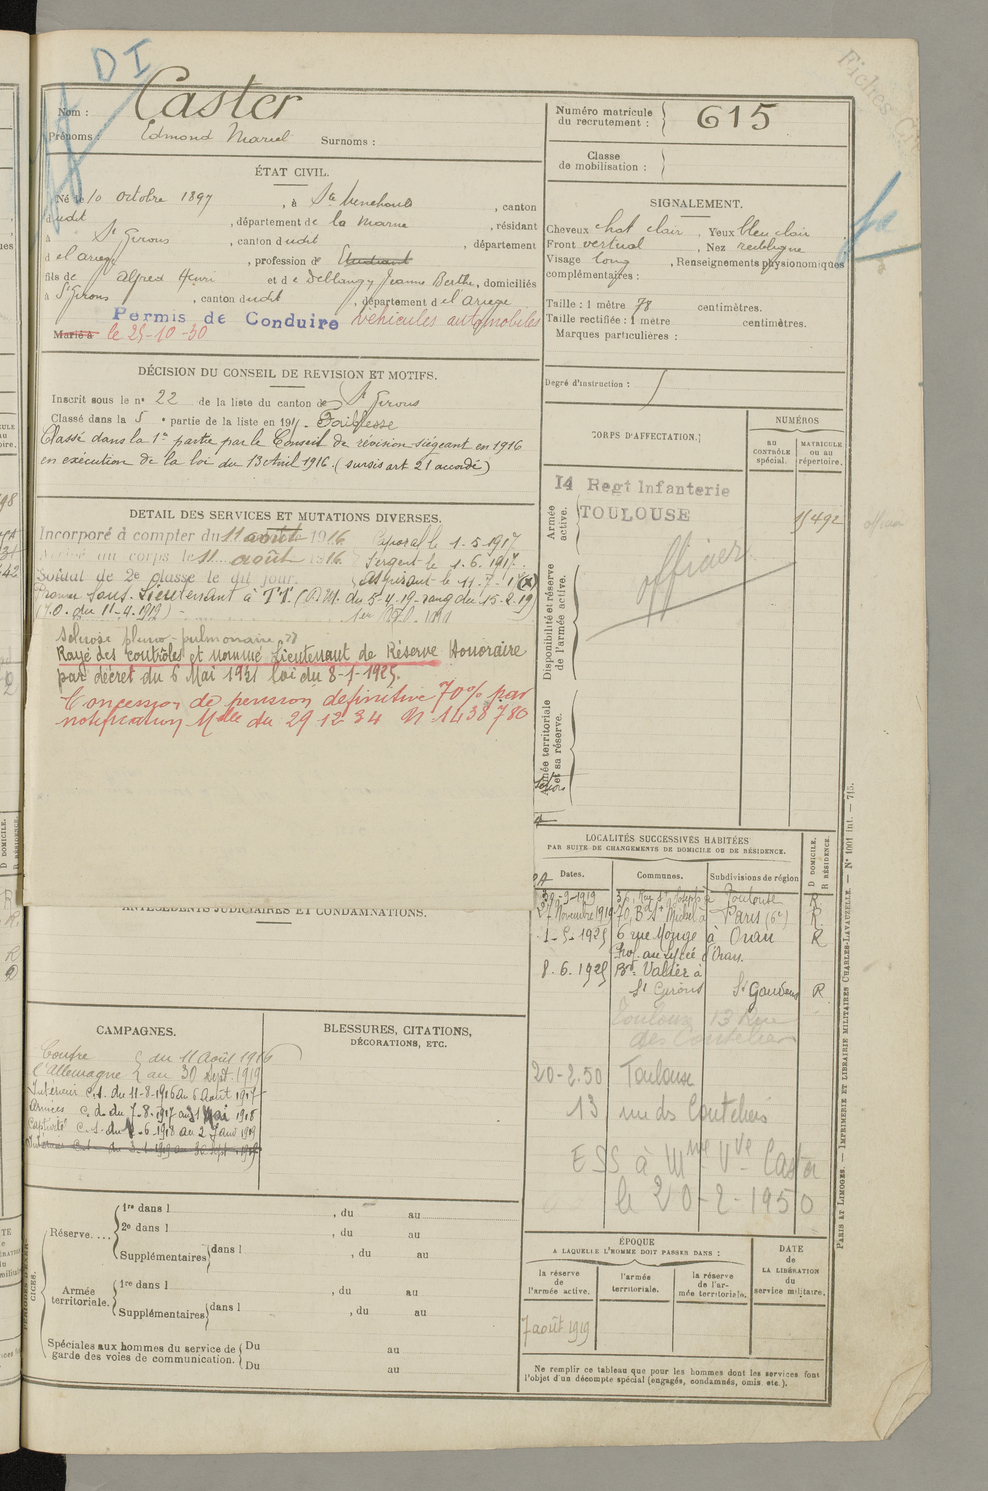 DI
Fiches
Nom : Caster
Prénoms : Edmond Marcel Surnoms :
Numéro matricule du recrutement : 615
Classe de mobilisation :
ÉTAT CIVIL.
Né le 10 octobre 1897, à Ste Menehould, canton
dudit, département de la Marne, résidant
à St Girons, canton dudit, département
d el'ariège, profession de Etudiant
fils de Alfred Henri et de Deblangy Jeanne Berthe, domiciliés
à St Girons, canton dudit, département d el'ariège
Permis de Conduire véhicules automobiles
Marié à le 25-10-30
SIGNALEMENT.
Cheveux chat clair. Yeux bleu clair
Front vertical, Nez rectiligne
Visage long, Renseignements physionomiques
complémentaires :
Taille : 1 mètre 78 centimètres.
Taille rectifiée : 1 mètre centimètres.
Marques particulières :
Degré d'instruction :
DÉCISION DU CONSEIL DE REVISION ET MOTIFS.
Inscrit sous le n° 22 de la liste du canton de St Girons
Classé dans la 5e partie de la liste en 191 . Faiblesse
Classé dans la 1re partie par le Conseil de révision siégeant en 1916
en exécution de la loi du 13 Avril 1916. (sursis art 21 accordé)
CORPS D'AFFECTATION.
NUMÉROS
au CONTRÔLE spécial.
MATRICULE ou au répertoire.
Armée active.
14 Regt Infanterie
TOULOUSE
15492
officier
Disponibilité et réserve de l'armée active.
Armée territoriale et sa réserve.
DETAIL DES SERVICES ET MUTATIONS DIVERSES.
Incorporé à compter du 11 août 1916 Caporal le 1-5-1917
Arrivé au corps le 11 août 1916. Sergent le 1.6.1917.
Soldat de 2e classe le dit jour. Aspirant le 11-7-17 (x)
Promu Sous-Lieutenant à T.T. (D.M. du 5-4-19 rang du 15-2-19)
(J.O. du 11-4-1919)
Sclérose pleuro-pulmonaire
Rayé des contrôles et nommé Lieutenant de Réserve Honoraire
par décret du 6 Mai 1931 loi du 8-1-1925.
Concession de pension définitive 70% par
notification Mlle du 29-12-34 N° 1438780
LOCALITÉS SUCCESSIVES HABITÉES
PAR SUITE DE CHANGEMENTS DE DOMICILE OU DE RÉSIDENCE.
Dates. Communes. Subdivisions de région
D DOMICILE.
R RÉSIDENCE.
30-9-1919 Toulouse R
27 Novembre 1919 70, Bd St Michel à Paris (6e) R
1-5-1925 6 rue Monge à Oran R
Prof. au Lycée d'Oran.
8.6.1925 Bd. Valier à
St Girons St Gaudens R
Toulouse 13 Rue
des Couteliers
20-2.50 Toulouse
13 rue ds Couteliers
ESS à Mme Vve Caster
le 20-2-1950
ANTÉCÉDENTS JUDICIAIRES ET CONDAMNATIONS.
CAMPAGNES.
Contre du 11 Août 1916
l'Allemagne au 30 Sept. 1919
Intérieur C.S. du 11-8-1916 au 6 Août 1917
Armées C.d. du 7-8-1917 au 31 Mai 1918
Captivité C.S. du 1-6-1918 au 2 Janv 1919
BLESSURES, CITATIONS,
DÉCORATIONS, ETC.
Réserve....
1re dans l , du au
2e dans l , du au
Supplémentaires dans l , du au
Armée territoriale.
1re dans l , du au
Supplémentaires dans l , du au
Spéciales aux hommes du service de garde des voies de communication.
Du au
Du au
ÉPOQUE
A LAQUELLE L'HOMME DOIT PASSER DANS :
la réserve de l'armée active.
l'armée territoriale.
la réserve de l'armée territoriale.
DATE DE LA LIBÉRATION du service militaire.
7 août 1919
Ne remplir ce tableau que pour les hommes dont les services font
l'objet d'un décompte spécial (engagés, condamnés, omis, etc.).
PARIS ET LIMOGES. — IMPRIMERIE ET LIBRAIRIE MILITAIRES CHARLES-LAVAUZELLE. — N° 1001 int. — 715.